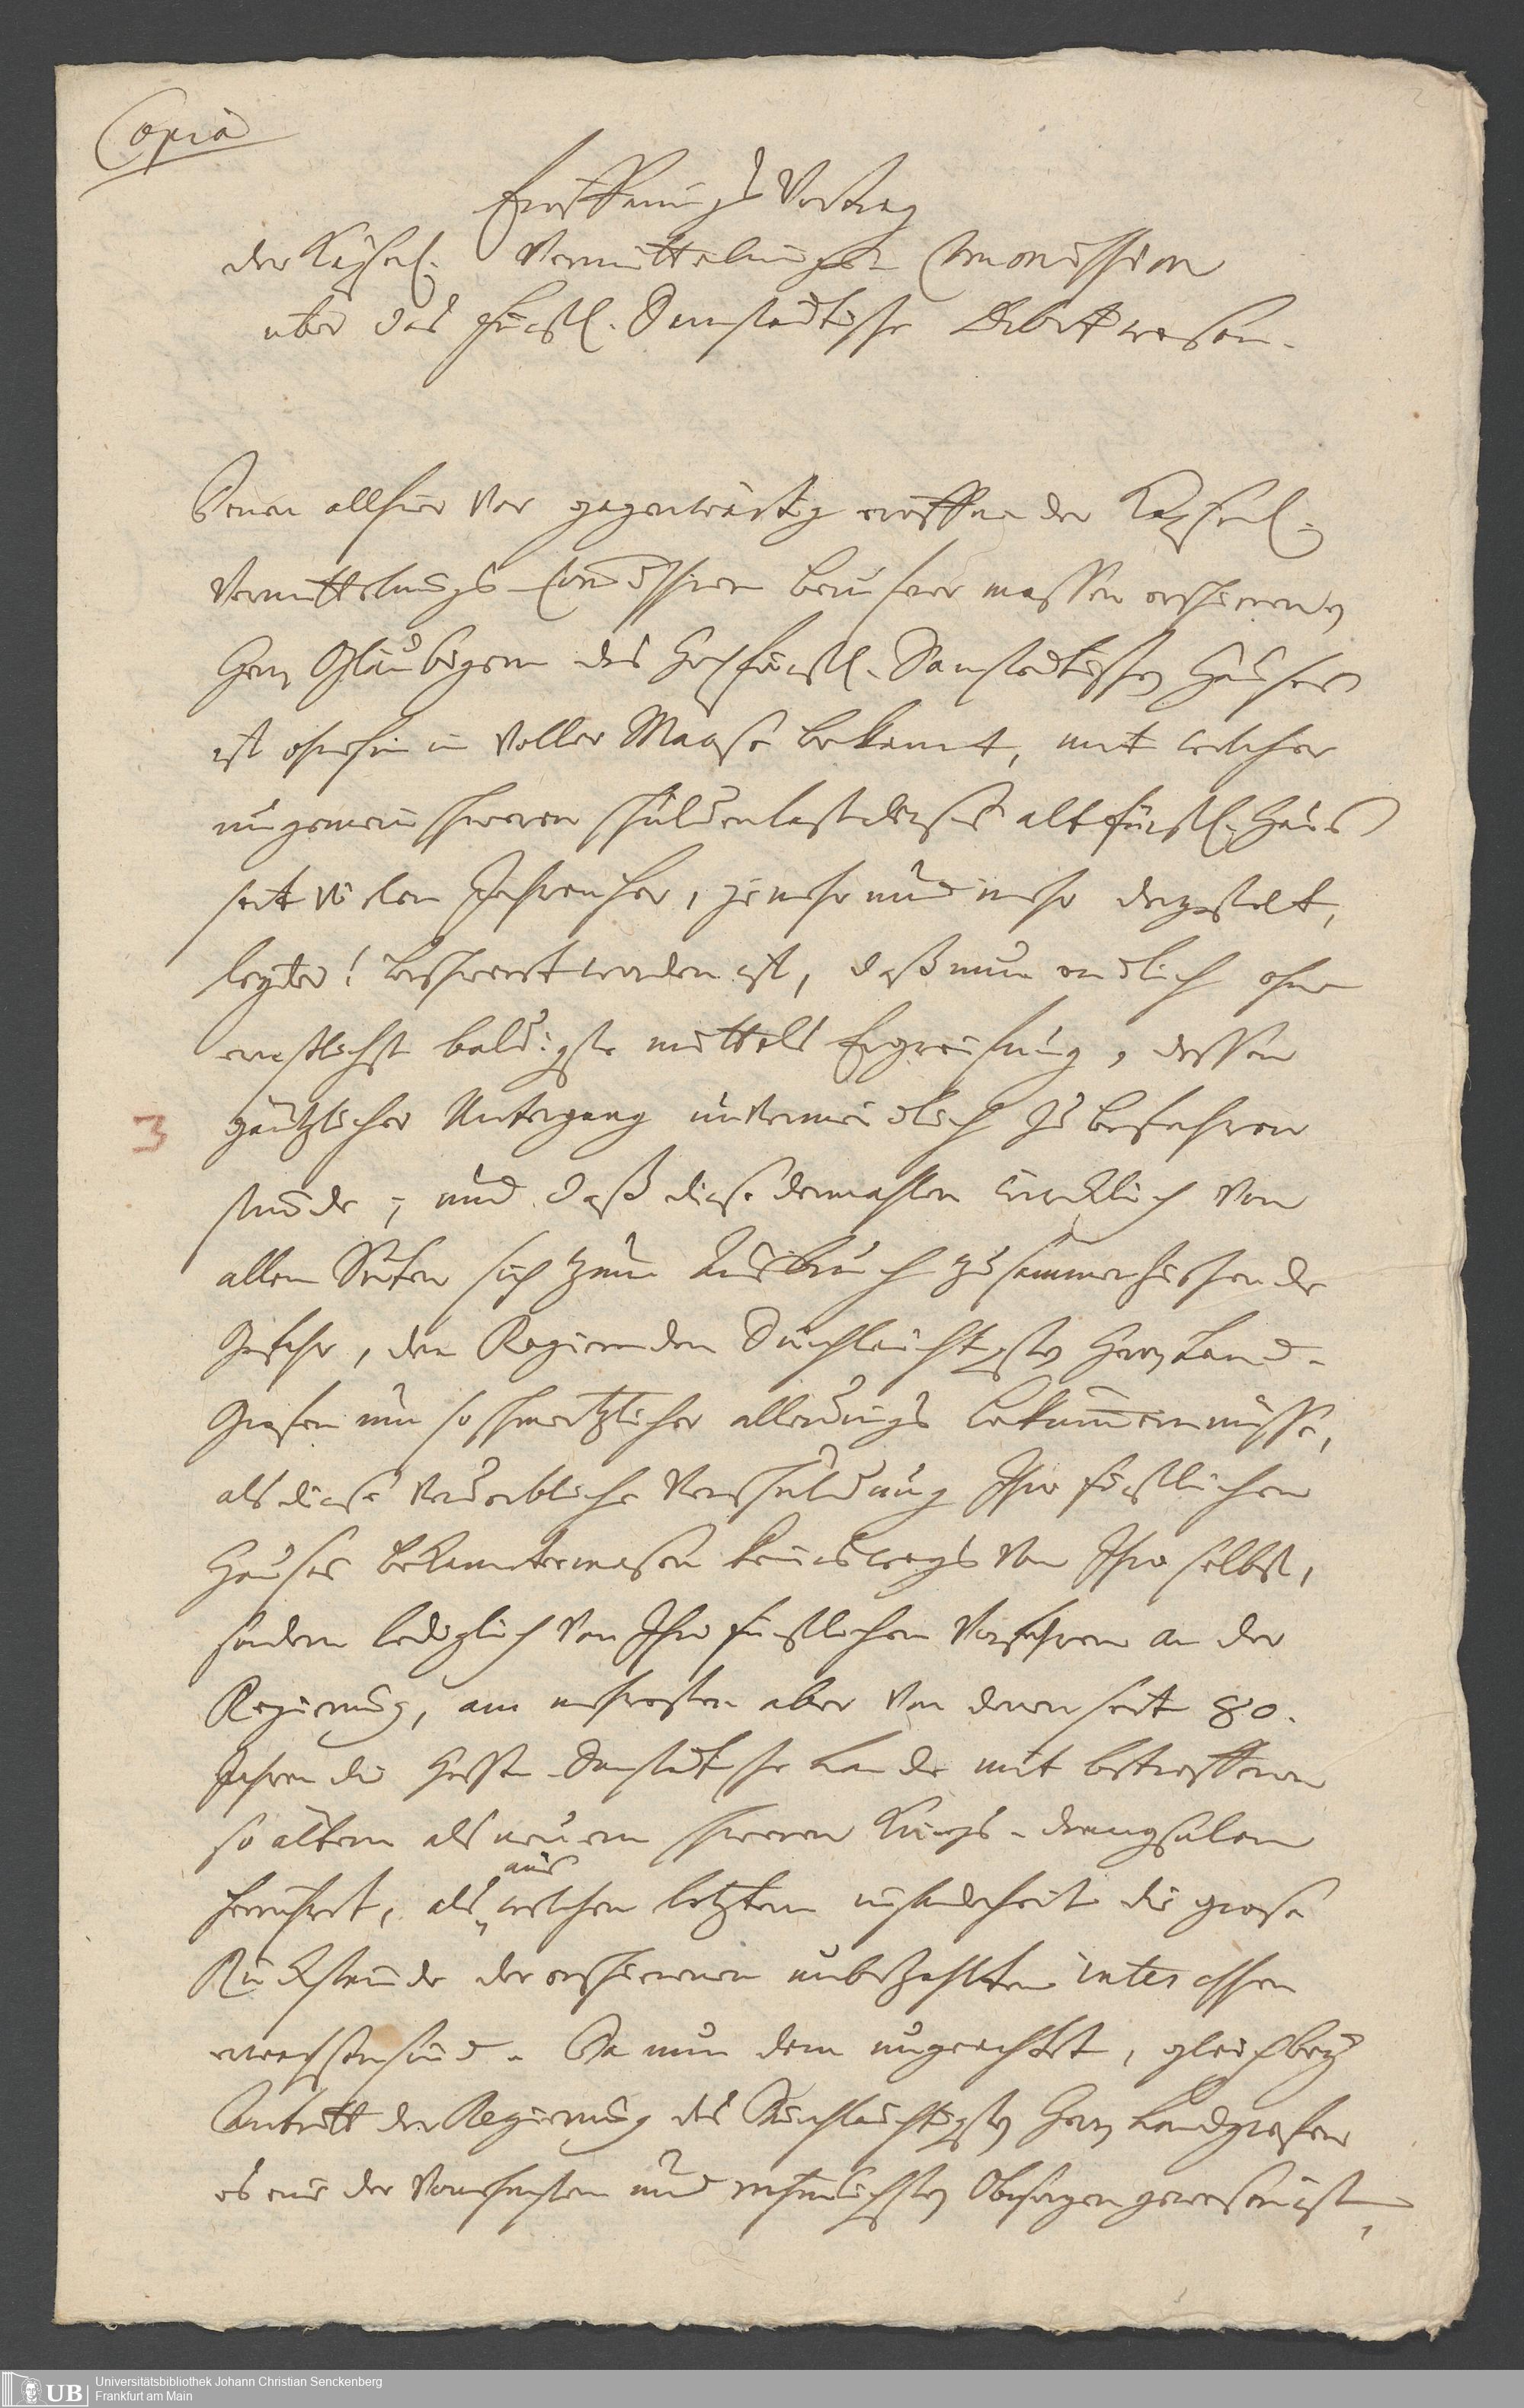 Copia
Eröffnungs Vortrag
der Kayserl. Vermittelungs- Commission
über das Fürstl. Darmstädtische Debitwesen.
Denen allhier vor gegenwärtig eröffnender Kayserl.
Vermittelungs-Commission berufener massen erschienen
Herrn Gläubigern des Hochfürstl. Darmstädtischen Hauses
ist ohnehin in voller Maase bekannt, mit welcher
ungemein schweren Schuldenlast dieses alt fürstl. Haus
seit vielen Jahren her, je mehr und mehr dergestalt,
leyder! beschwert worden ist, daß nun endlich ohne
ernstlichst baldigste mittels Ergreifung, dessen
gäntzlicher Untergang unvermeidlich zu befahren
stünde; und daß diese dermahlen würcklich von
allen Seiten sich zum Ausbruch zusammenziehende
Gefahr, den Regierenden Durchleuchtigsten Herrn Land-
Grafen um so schmertzlicher allerdings bekümmern müsse,
als diese verderbliche Verschuldung Ihro fürstlichen
Hauses bekanntermasen keineswegs von Ihro selbst,
sondern lediglich von Ihro fürstlichen Vorfahren an der
Regierung, am mehresten aber von denen seit 80.
Jahren die Hessen-Darmstädtische Lande mit betroffenen
so ältern als neuern schweren Kriegs-drangsalen
herrühret, als aus welchen letztern insonderheit die grose
Rückstände der erschienenen unbezahlten interessen
erwachsen sind. Da nun dem ungeachtet, gleich bey
Antritt der Regierung des Durchleuchtigsten Herrn Landgrafen
es eine der vornehmsten und rühmlichsten Obsorgen gewesen ist,
3
2
Universitätsbibliothek Johann Christian Senckenberg
Frankfurt am Main
UB